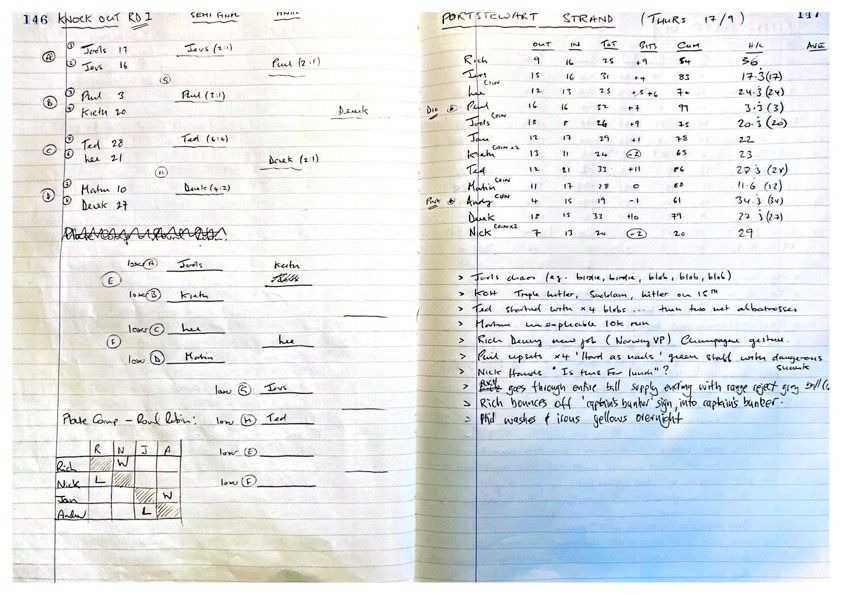 146 KNOCK OUT RD 1 SEMI FINAL FINAL
A 1 Jools 17 Jevs (2:1)
2 Jevs 16 Paul (2:1)
G
B 3 Paul 3 Paul (3:1)
Kieth 20 Derek
C Ted 28 Ted (4:4)
Lee 21 Derek (2:1)
H
D Martin 10 Derek (4:2)
Derek 27
loser A Jools Kieth
E
loser B Kieth
loser C Lee
F Lee
loser D Martin
loser G Jevs
Plate Comp - Round Robin: loser H Ted
loser E
loser F
R N J A
Rich W
Nick L
Jan W
Andrew L
PORTSTEWART STRAND (THURS 17/9) 147
OUT IN TOT BITS CUM H/C AVE
Rich 9 16 25 +9 54 36
Jevs 15 16 31 +4 83 17.3 (17)
Lee COIN 12 13 25 +6 70 24.3 (24)
Paul 16 16 32 +7 99 3.3 (3)
Jools COIN 18 8 26 +9 75 20.3 (20)
Jan 12 17 29 +1 78 22
Kieth COIN x2 13 11 24 -2 63 23
Ted 12 21 33 +11 86 (28)
Martin COIN 11 17 28 0 88 11.6 (12)
Andy COIN 4 15 19 -1 61 34.3 (34)
Derek 18 15 33 +10 79 27.3 (27)
Nick COIN x2 7 13 20 -2 20 29
> Jools chaos (e.g. birdie, birdie, blob, blob, blob)
> KOH Triple hitler, Saddam, hitler on 15TH
> Ted started with x4 blobs ... then two net albatrosses
> Martin unexplicable 10k run
> Rich Denny new job (Norway VP) Champagne gesture.
> Phil upsets x4 "Hard as nails" green staff with dangerous shank
> Nick Hounds "Is tens for lunch"?
> goes through entire ball supply ending with range reject grey ball
> Rich bounces off 'captain's bunker' sign, into captain's bunker.
> Phil washes & irons yellows overnight